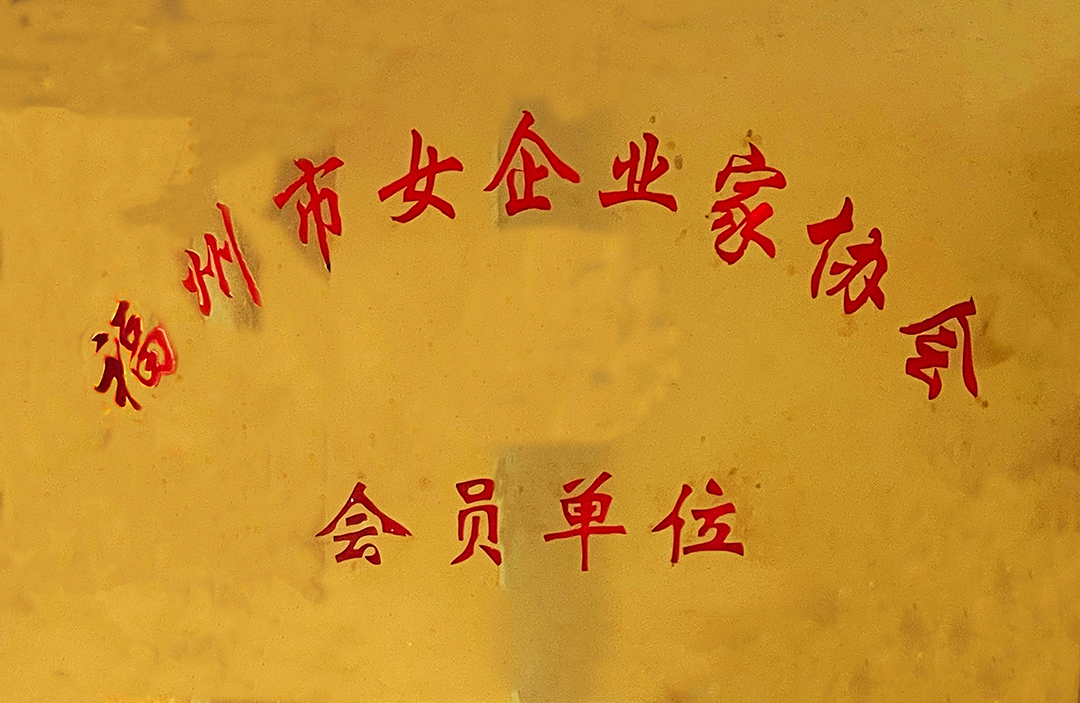 福州市女企业家协会
会员单位